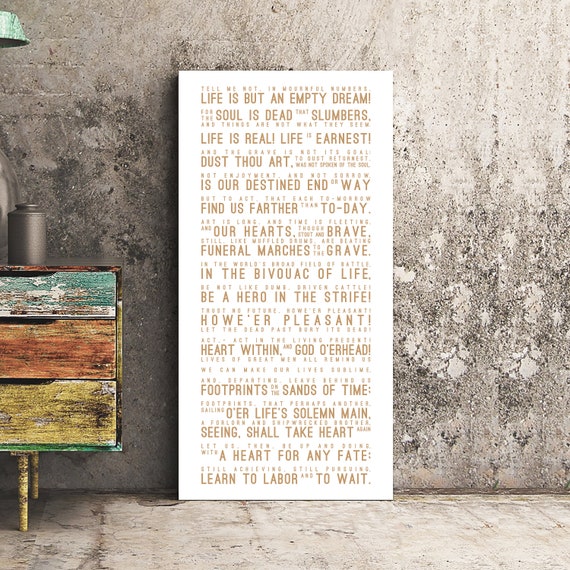 TELL ME NOT, IN MOURNFUL NUMBERS,
LIFE IS BUT AN EMPTY DREAM!
FOR THE SOUL IS DEAD THAT SLUMBERS,
AND THINGS ARE NOT WHAT THEY SEEM.
LIFE IS REAL! LIFE IS EARNEST!
AND THE GRAVE IS NOT ITS GOAL;
DUST THOU ART, TO DUST RETURNEST,
WAS NOT SPOKEN OF THE SOUL.
NOT ENJOYMENT, AND NOT SORROW,
IS OUR DESTINED END OR WAY
BUT TO ACT, THAT EACH TO-MORROW
FIND US FARTHER THAN TO-DAY.
ART IS LONG, AND TIME IS FLEETING,
AND OUR HEARTS, THOUGH STOUT AND BRAVE,
STILL, LIKE MUFFLED DRUMS, ARE BEATING
FUNERAL MARCHES TO THE GRAVE.
IN THE WORLD'S BROAD FIELD OF BATTLE,
IN THE BIVOUAC OF LIFE,
BE NOT LIKE DUMB, DRIVEN CATTLE!
BE A HERO IN THE STRIFE!
TRUST NO FUTURE, HOWE'ER PLEASANT!
HOWE'ER PLEASANT!
LET THE DEAD PAST BURY ITS DEAD!
ACT,- ACT IN THE LIVING PRESENT!
HEART WITHIN, AND GOD O'ERHEAD!
LIVES OF GREAT MEN ALL REMIND US
WE CAN MAKE OUR LIVES SUBLIME,
AND, DEPARTING, LEAVE BEHIND US
FOOTPRINTS ON THE SANDS OF TIME;
FOOTPRINTS, THAT PERHAPS ANOTHER,
SAILING O'ER LIFE'S SOLEMN MAIN,
A FORLORN AND SHIPWRECKED BROTHER,
SEEING, SHALL TAKE HEART AGAIN
LET US, THEN, BE UP AND DOING,
WITH A HEART FOR ANY FATE;
STILL ACHIEVING, STILL PURSUING,
LEARN TO LABOR AND TO WAIT.